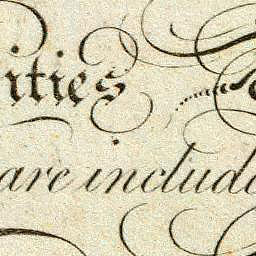 ities
are includ